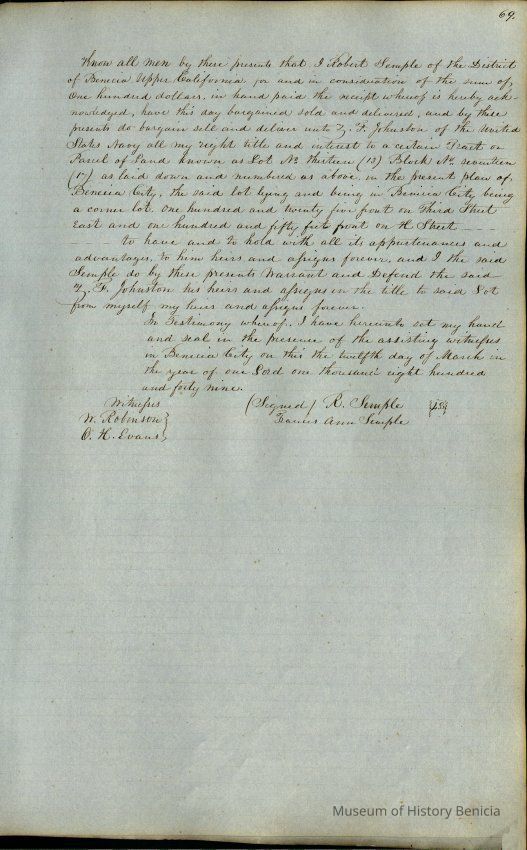 69.
Know all men by these presents that, I Robert Semple of the District
of Benicia Upper California for and in consideration of the sum of
One hundred dollars, in hand paid the receipt whereof is hereby ack-
nowledged, have this day bargained sold and delivered, and by these
presents do bargain sell and deliver unto Z. F. Johnston of the United
States Navy all my right title and interest to a certain Tract or
Parcel of Land known as Lot No. thirteen (13) Block No. seventeen
(17) as laid down and numbered as above, in the present plan of
Benicia City, the said lot lying and being in Benicia City being
a corner lot, one hundred and twenty five front on Third Street
East and one hundred and fifty feet front on H Street - - -
- - - - to have and to hold with all its appurtenances and
advantages, to him heirs and assigns forever, and I the said
Semple do by these presents Warrant and Defend the said
Z. F. Johnston his heirs and assigns in the title to said Lot
from myself my heirs and assigns forever.
In Testimony whereof, I have hereunto set my hand
and seal in the presence of the assisting witnesses
in Benicia City on this the twelfth day of March in
the year of our Lord one thousand eight hundred
and forty nine.
Witnesses (Signed) R. Semple
W. Robinson} Frances Ann Semple
O. H. Evans}
Museum of History Benicia